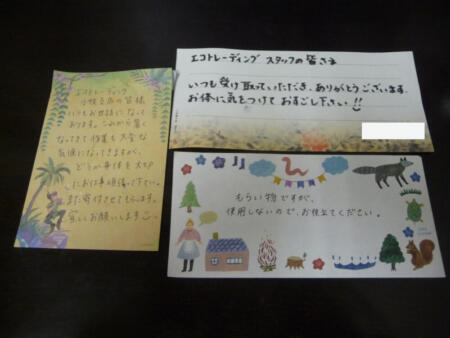 エコトレーディング
小牧支店の皆様
いつもお世話になって
おります。これから暑く
なってきて作業も大変な
気候になってきますが、
どうか身体を大切
にお仕事頑張って下さい。
また寄付させてもらいます。
宜しくお願いします
エコトレーディング スタッフの皆さま
いつも受け取っていただき、ありがとうございます。
お体に気をつけて おすごし下さい!!
もらい物ですが、
使用しないので、お役立てください。